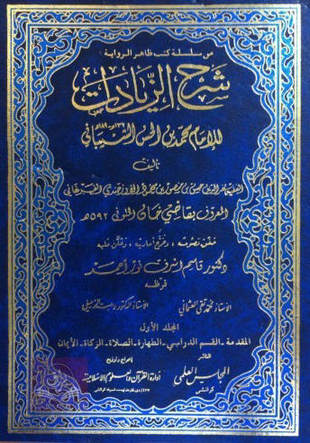 من سلسلة كتب ظاهر الرواية:
شرح الزيادات
للإمام محمد بن الحسن الشيباني
تأليف
المعروف بقاضي خان المتوفى ٥٩٢هـ
حقق نصوصه، وخرج أحاديثه، وعلق عليه
دكتور قاسم أشرف نور أحمد
قرظه
الأستاذ محمد تقي العثماني
الأستاذ الدكتور وهبة الزحيلي
المجلد الأول
المقدمة - القسم الدراسي - الطهارة - الصلاة - الزكاة - الأيمان
الناشر
المجلس العلمي
كراتشي
إدارة القرآن والعلوم الإسلامية